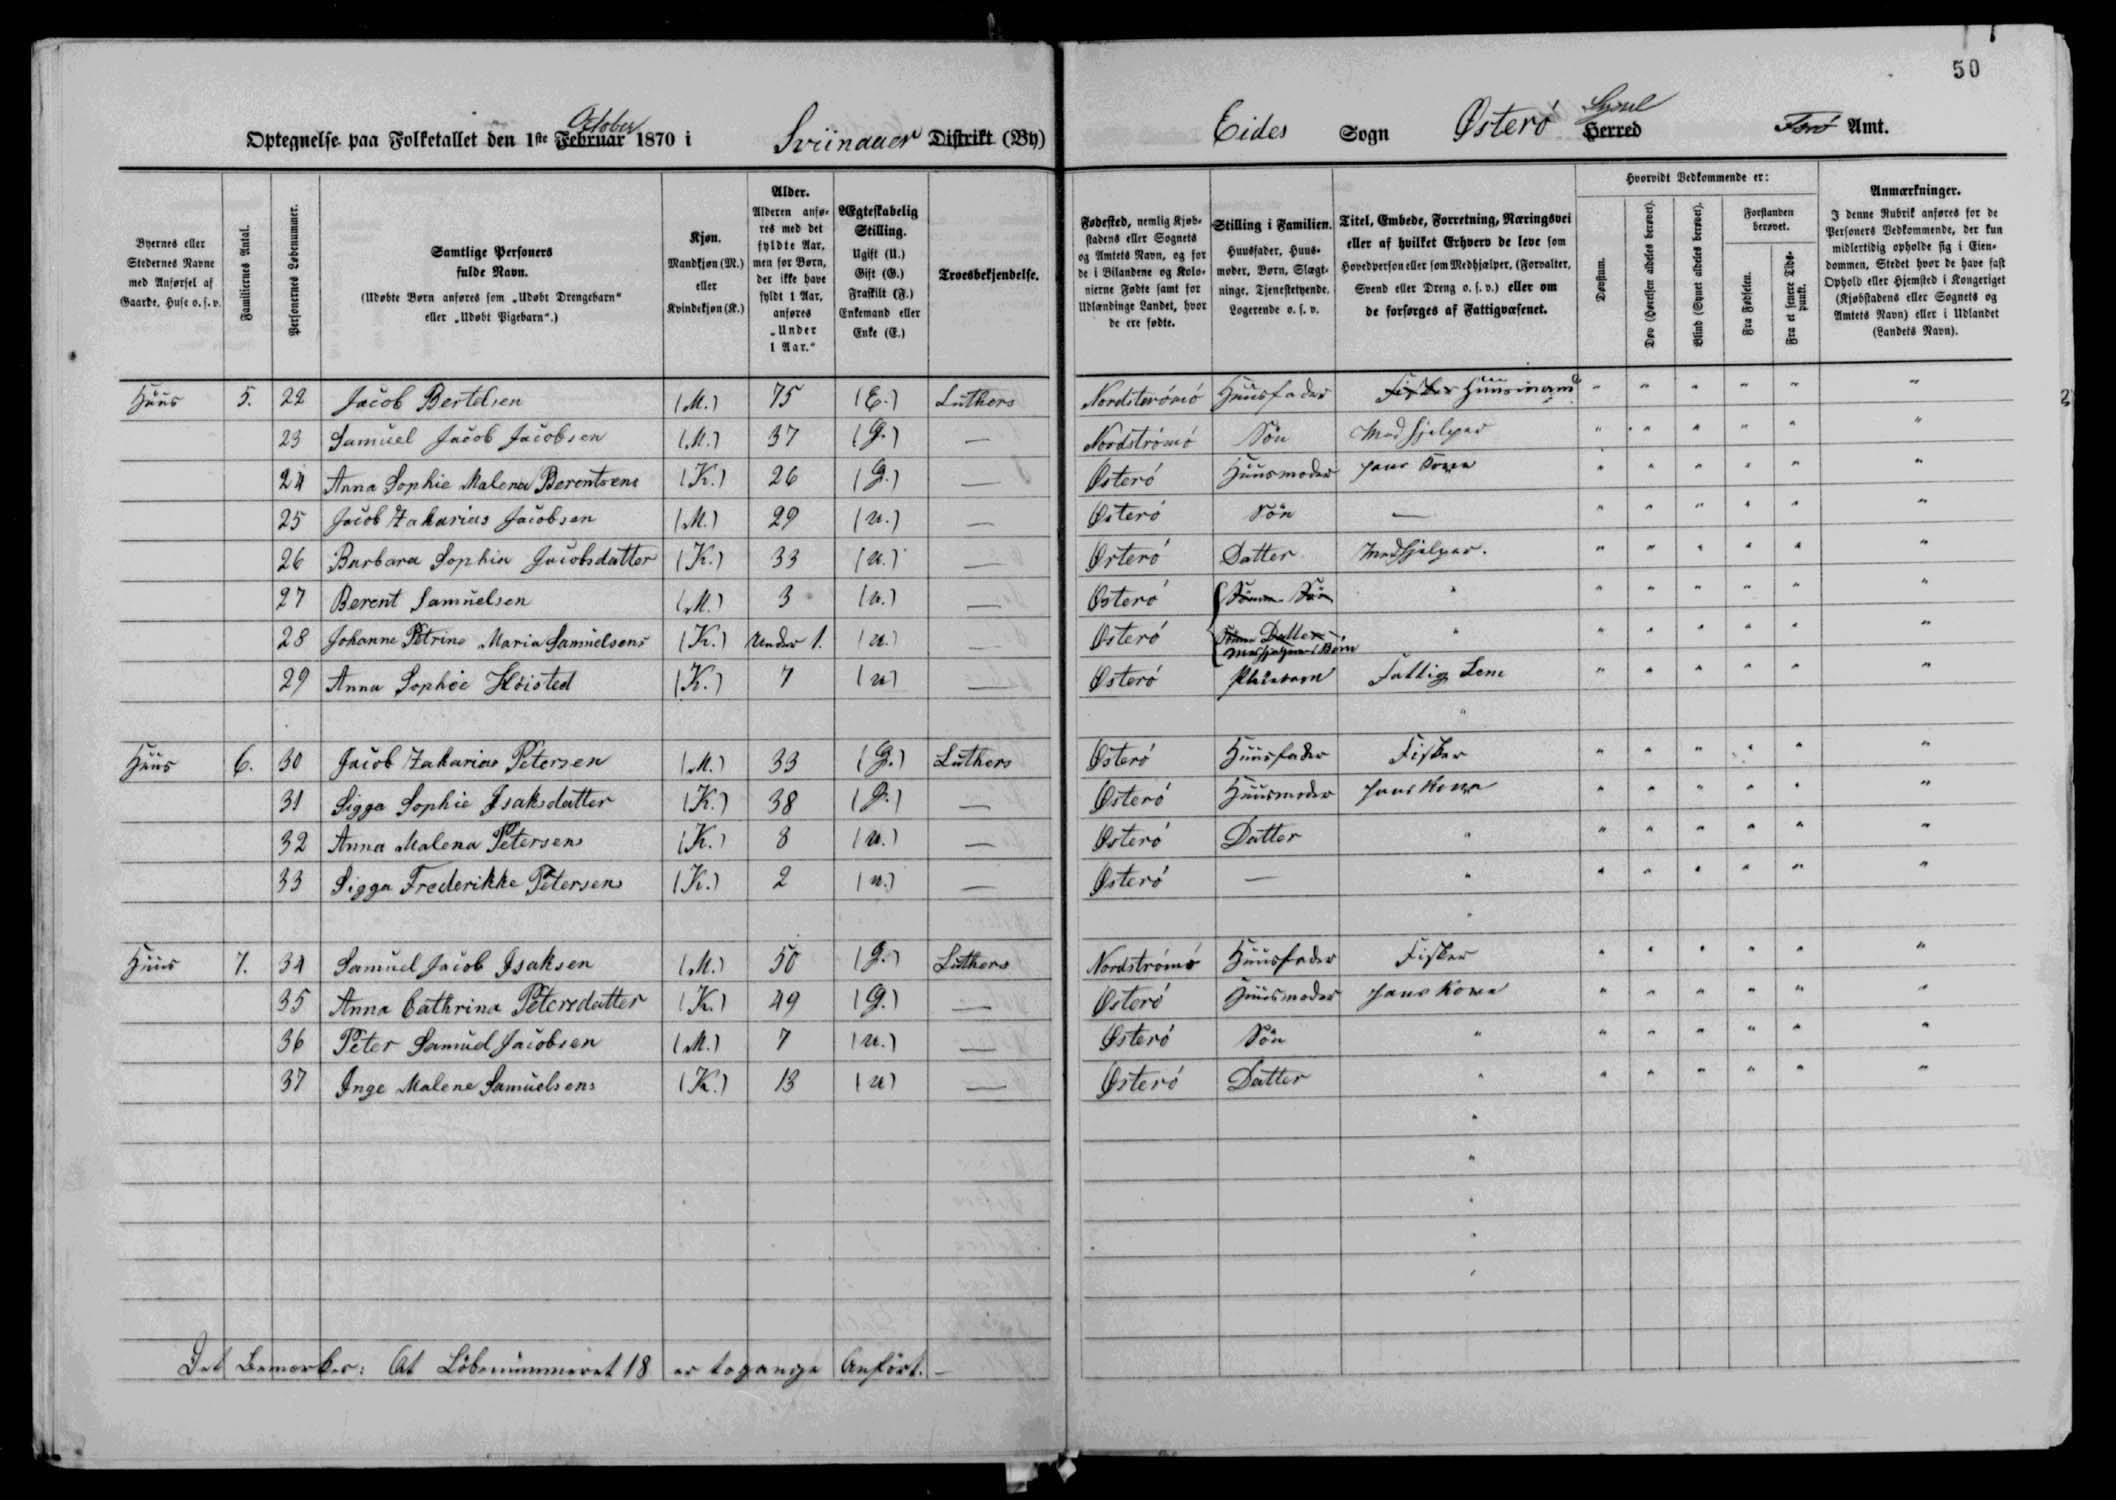 50
Optegnelse paa Folketallet den 1ste Februar October 1870 i Sviinaaer Distrikt (By) Eides Sogn Østerö Herred Sysel Færö Amt.
Byernes eller Stedernes Navne med Anførsel af Gaarde, Huse o. s. v.
Familiernes Antal.
Personernes Løbenummer.
Samtlige Personers fulde Navn.
(Udøbte Børn anføres som „Udøbt Drengebarn“ eller „Udøbt Pigebarn“.)
Kjøn.
Mandkjøn (M.) eller Kvindekjøn (K.)
Alder.
Alderen anføres med det fyldte Aar, men for Børn, der ikke have fyldt 1 Aar, anføres „Under 1 Aar.“
Ægteskabelig Stilling.
Ugift (U.) Gift (G.) Fraskilt (F.) Enkemand eller Enke (E.)
Troesbekjendelse.
Fødested, nemlig Kjøbstadens eller Sognets og Amtets Navn, og for de i Bilandene og Kolonierne Fødte samt for Udlændinge Landet, hvor de ere fødte.
Stilling i Familien.
Huusfader, Huusmoder, Børn, Slægtninge, Tjenestetyende, Logerende o. s. v.
Titel, Embede, Forretning, Næringsvei eller af hvilket Erhverv de leve som Hovedperson eller som Medhjælper, (Forvalter, Svend eller Dreng o. s. v.) eller om de forsørges af Fattigvæsenet.
Hvorvidt Vedkommende er:
Døvstum.
Døv (Hørelsen aldeles berøvet).
Blind (Synet aldeles berøvet).
Forstanden berøvet.
Fra Fødselen.
Fra et senere Tidspunkt.
Anmærkninger.
I denne Rubrik anføres for de Personers Vedkommende, der kun midlertidig opholde sig i Eiendommen, Stedet hvor de have fast Ophold eller Hjemsted i Kongeriget (Kjøbstadens eller Sognets og Amtets Navn) eller i Udlandet (Landets Navn).
Huus 5. 22 Jacob Bertelsen (M.) 75 (E.) Luthers Nordströmö Huusfader Fisker Huusmand " " " " " "
23 Samuel Jacob Jacobsen (M.) 37 (G.) — Nordströmö Sön Medhjelper " " " " " "
24 Anna Sophie Malena Berentsens (K.) 26 (G.) — Österö Huusmoder hans Kone " " " " " "
25 Jacob Zakarias Jacobsen (M.) 29 (u.) — Österö Sön — " " " " " "
26 Barbara Sophia Jacobsdatter (K.) 33 (u.) — Österö Datter Medhjelper. " " " " " "
27 Berent Samuelsen (M.) 3 (u.) — Österö Sönne Sön " " " " " " "
28 Johanne Petrine Maria Samuelsens (K.) Under 1. (u.) — Österö Sönne Datter Medhjelpers Börn " " " " " " "
29 Anna Sophie Höisted (K.) 7 (u) — Österö Pleiebarn Fattig Lem " " " " " "
"
Huus 6. 30 Jacob Zakarias Petersen (M.) 33 (G.) Luthers Österö Huusfader Fisker " " " " " "
31 Sigga Sophie Isaksdatter (K.) 38 (G.) — Österö Huusmoder hans Kone " " " " " "
32 Anna Malena Petersens (K.) 8 (u.) — Österö Datter " " " " " " "
33 Sigga Frederikke Petersens (K.) 2 (u.) — Österö — " " " " " " "
"
Huus 7. 34 Samuel Jacob Isaksen (M.) 50 (G.) Luthers Nordströmö Huusfader Fisker " " " " " "
35 Anna Cathrina Petersdatter (K.) 49 (G.) — Österö Huusmoder hans Kone " " " " " "
36 Peter Samuel Jacobsen (M.) 7 (u.) — Österö Sön " " " " " " "
37 Inge Malene Samuelsens (K.) 13 (u) — Österö Datter " " " " " " "
Det Bemærkes: At Löbenummeret 18 er togange Anfört. —